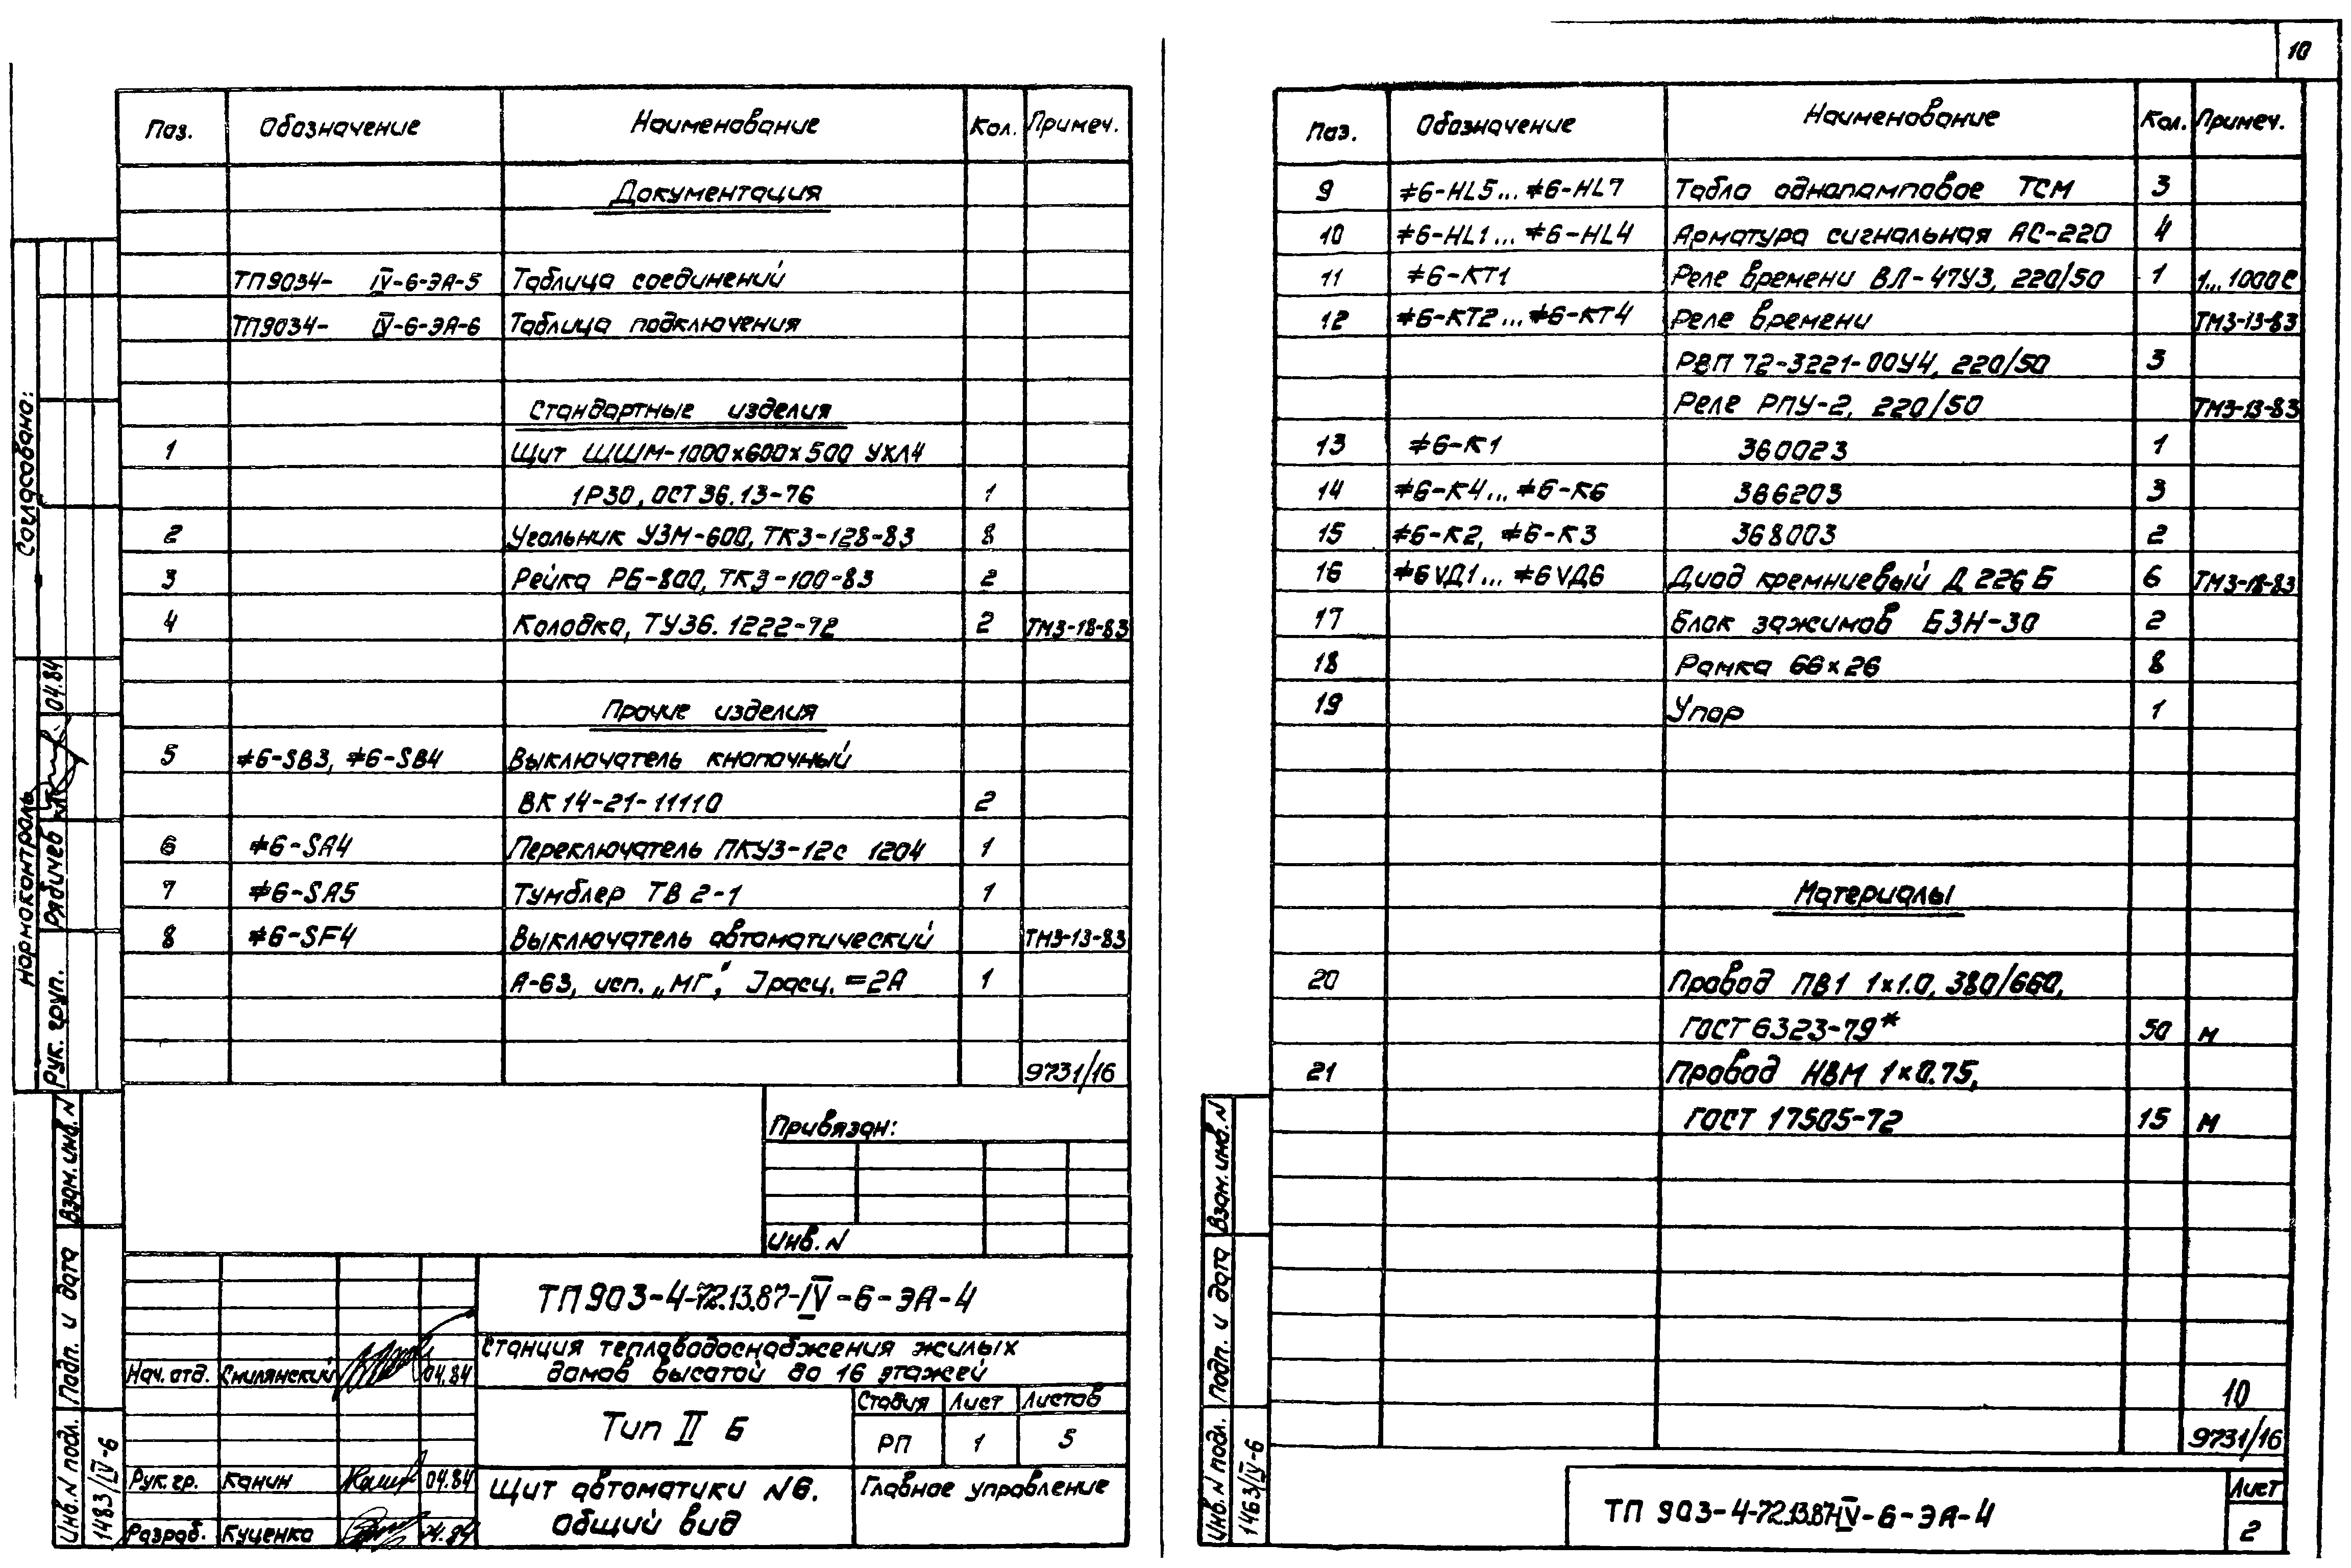 Поз. Обозначение Наименование Кол. Примеч.
Документация
ТП9034- IV-6-ЭА-5 Таблица соединений
ТП9034- IV-6-ЭА-6 Таблица подключения
Стандартные изделия
1 Щит ШШМ-1000х600х500 УХЛ4
1Р30, ОСТ 36.13-76 1
2 Угольник УЗМ-600, ТК3-128-83 8
3 Рейка РБ-800, ТК3-100-83 2
4 Колодка, ТУ36.1222-72 2 ТМ3-18-83
Прочие изделия
5 ≠6-SB3, ≠6-SB4 Выключатель кнопочный
ВК 14-21-11110 2
6 ≠6-SA4 Переключатель ПКУ3-12с 1204 1
7 ≠6-SA5 Тумблер ТВ 2-1 1
8 ≠6-SF4 Выключатель автоматический ТМ3-13-83
А-63, исп. „МГ", Iрасц. =2А 1
9731/16
Согласовано:
Нормоконтроль
Рук. груп. Рябичев 04.84
Взам. инв. N
Подп. и дата
Инв. N подл. 1483/IV-6
Привязан:
Инв. N
ТП 903-4-72.13.87-IV-6-ЭА-4
Станция тепловодоснабжения жилых
домов высотой до 16 этажей
Нач. отд. Смилянский 04.84
Тип II Б
Стадия Лист Листов
РП 1 5
Рук. гр. Канин 04.84
Разраб. Куценко 04.84
Щит автоматики N6.
Общий вид
Главное управление
10
Поз. Обозначение Наименование Кол. Примеч.
9 ≠6-HL5... ≠6-HL7 Табло одналамповое ТСМ 3
10 ≠6-HL1... ≠6-HL4 Арматура сигнальная АС-220 4
11 ≠6-КТ1 Реле времени ВЛ-47У3, 220/50 1 1...1000с
12 ≠6-КТ2...≠6-КТ4 Реле времени ТМ3-13-83
РВП 72-3221-00У4, 220/50 3
Реле РПУ-2, 220/50 ТМ3-13-83
13 ≠6-К1 360023 1
14 ≠6-К4... ≠6-К6 366203 3
15 ≠6-К2, ≠6-К3 368003 2
16 ≠6VД1... ≠6VД6 Диод кремниевый Д 226 Б 6 ТМ3-18-83
17 Блок зажимов БЗН-30 2
18 Рамка 66х26 8
19 Упор 1
Материалы
20 Провод ПВ1 1х1.0, 380/660,
ГОСТ 6323-79* 50 м
21 Провод НВМ 1х0.75,
ГОСТ 17505-72 15 м
10
9731/16
Взам. инв. N
Подп. и дата
Инв. N подл. 1463/IV-6
ТП 903-4-72.13.87-IV-6-ЭА-4
Лист
2